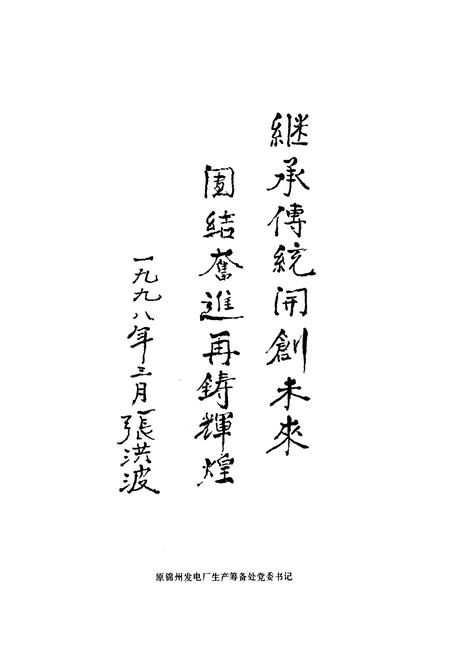 继承傳統開創未來
團结奮進再鑄輝煌
一九九八年三月張洪波
原锦州发电厂生产筹备处党委书记